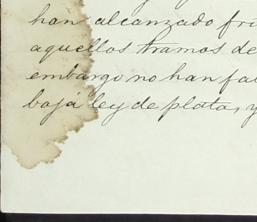 han alcanzado
aquellos tramos de
embargo no han
bajá ley de plata, y